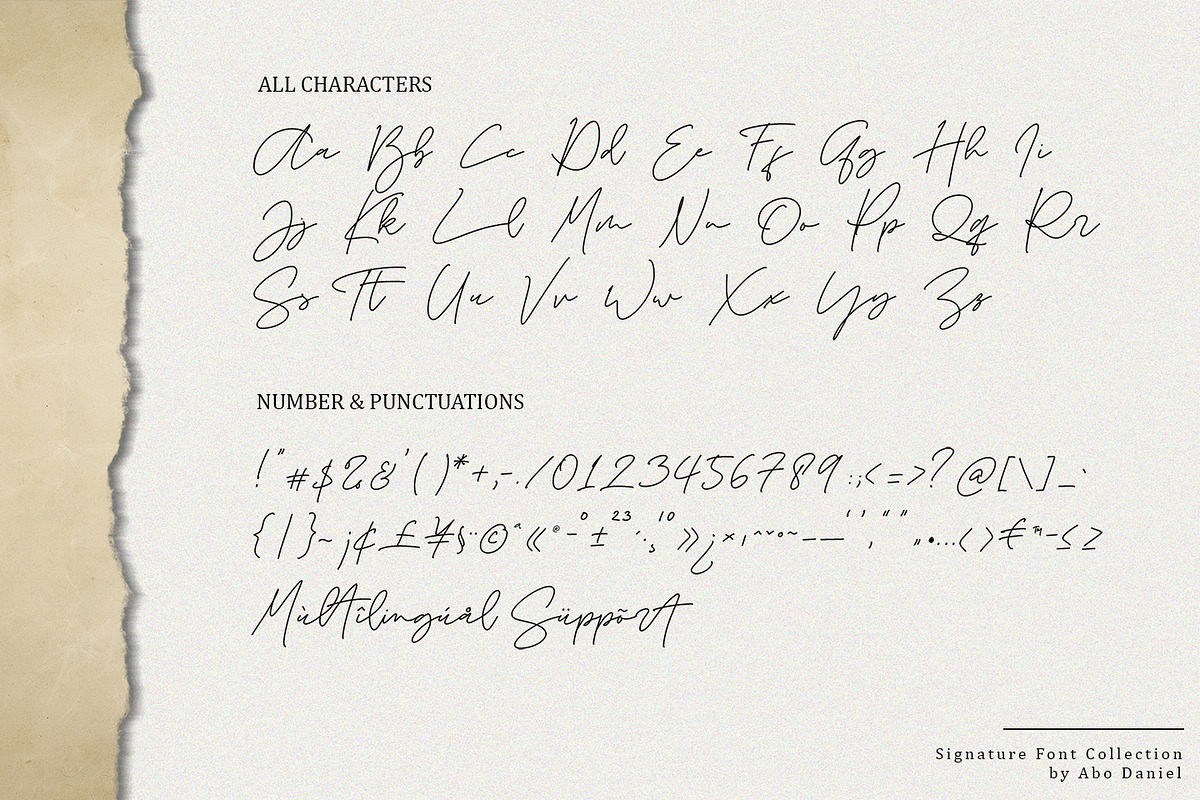 ALL CHARACTERS
Aa Bb Cc Dd Ee Ff Gg Hh Ii
Jj Kk Ll Mm Nn Oo Pp Qq Rr
Ss Tt Uu Vv Ww Xx Yy Zz
NUMBER & PUNCTUATIONS
!"#$%&'()*+,-./0123456789:;<=>?@[\]_`
{|}~¡¢£¥§¨©ª«®¯°±²³´·¸¹º»¿×ı^ˇ˘°~–—‘’‚“”„•…‹›€™−≤≥
Mùltîlingúål Süppõrt
Signature Font Collection
by Abo Daniel